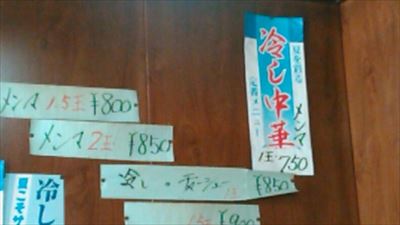 メンマ 1.5玉 ¥800
メンマ 2玉 ¥850
夏を彩る
冷し中華
定番メニュー
メンマ
1玉 750
冷し チャーシュー 1玉 ¥850
1.5玉 ¥900
冷し
夏こそサ